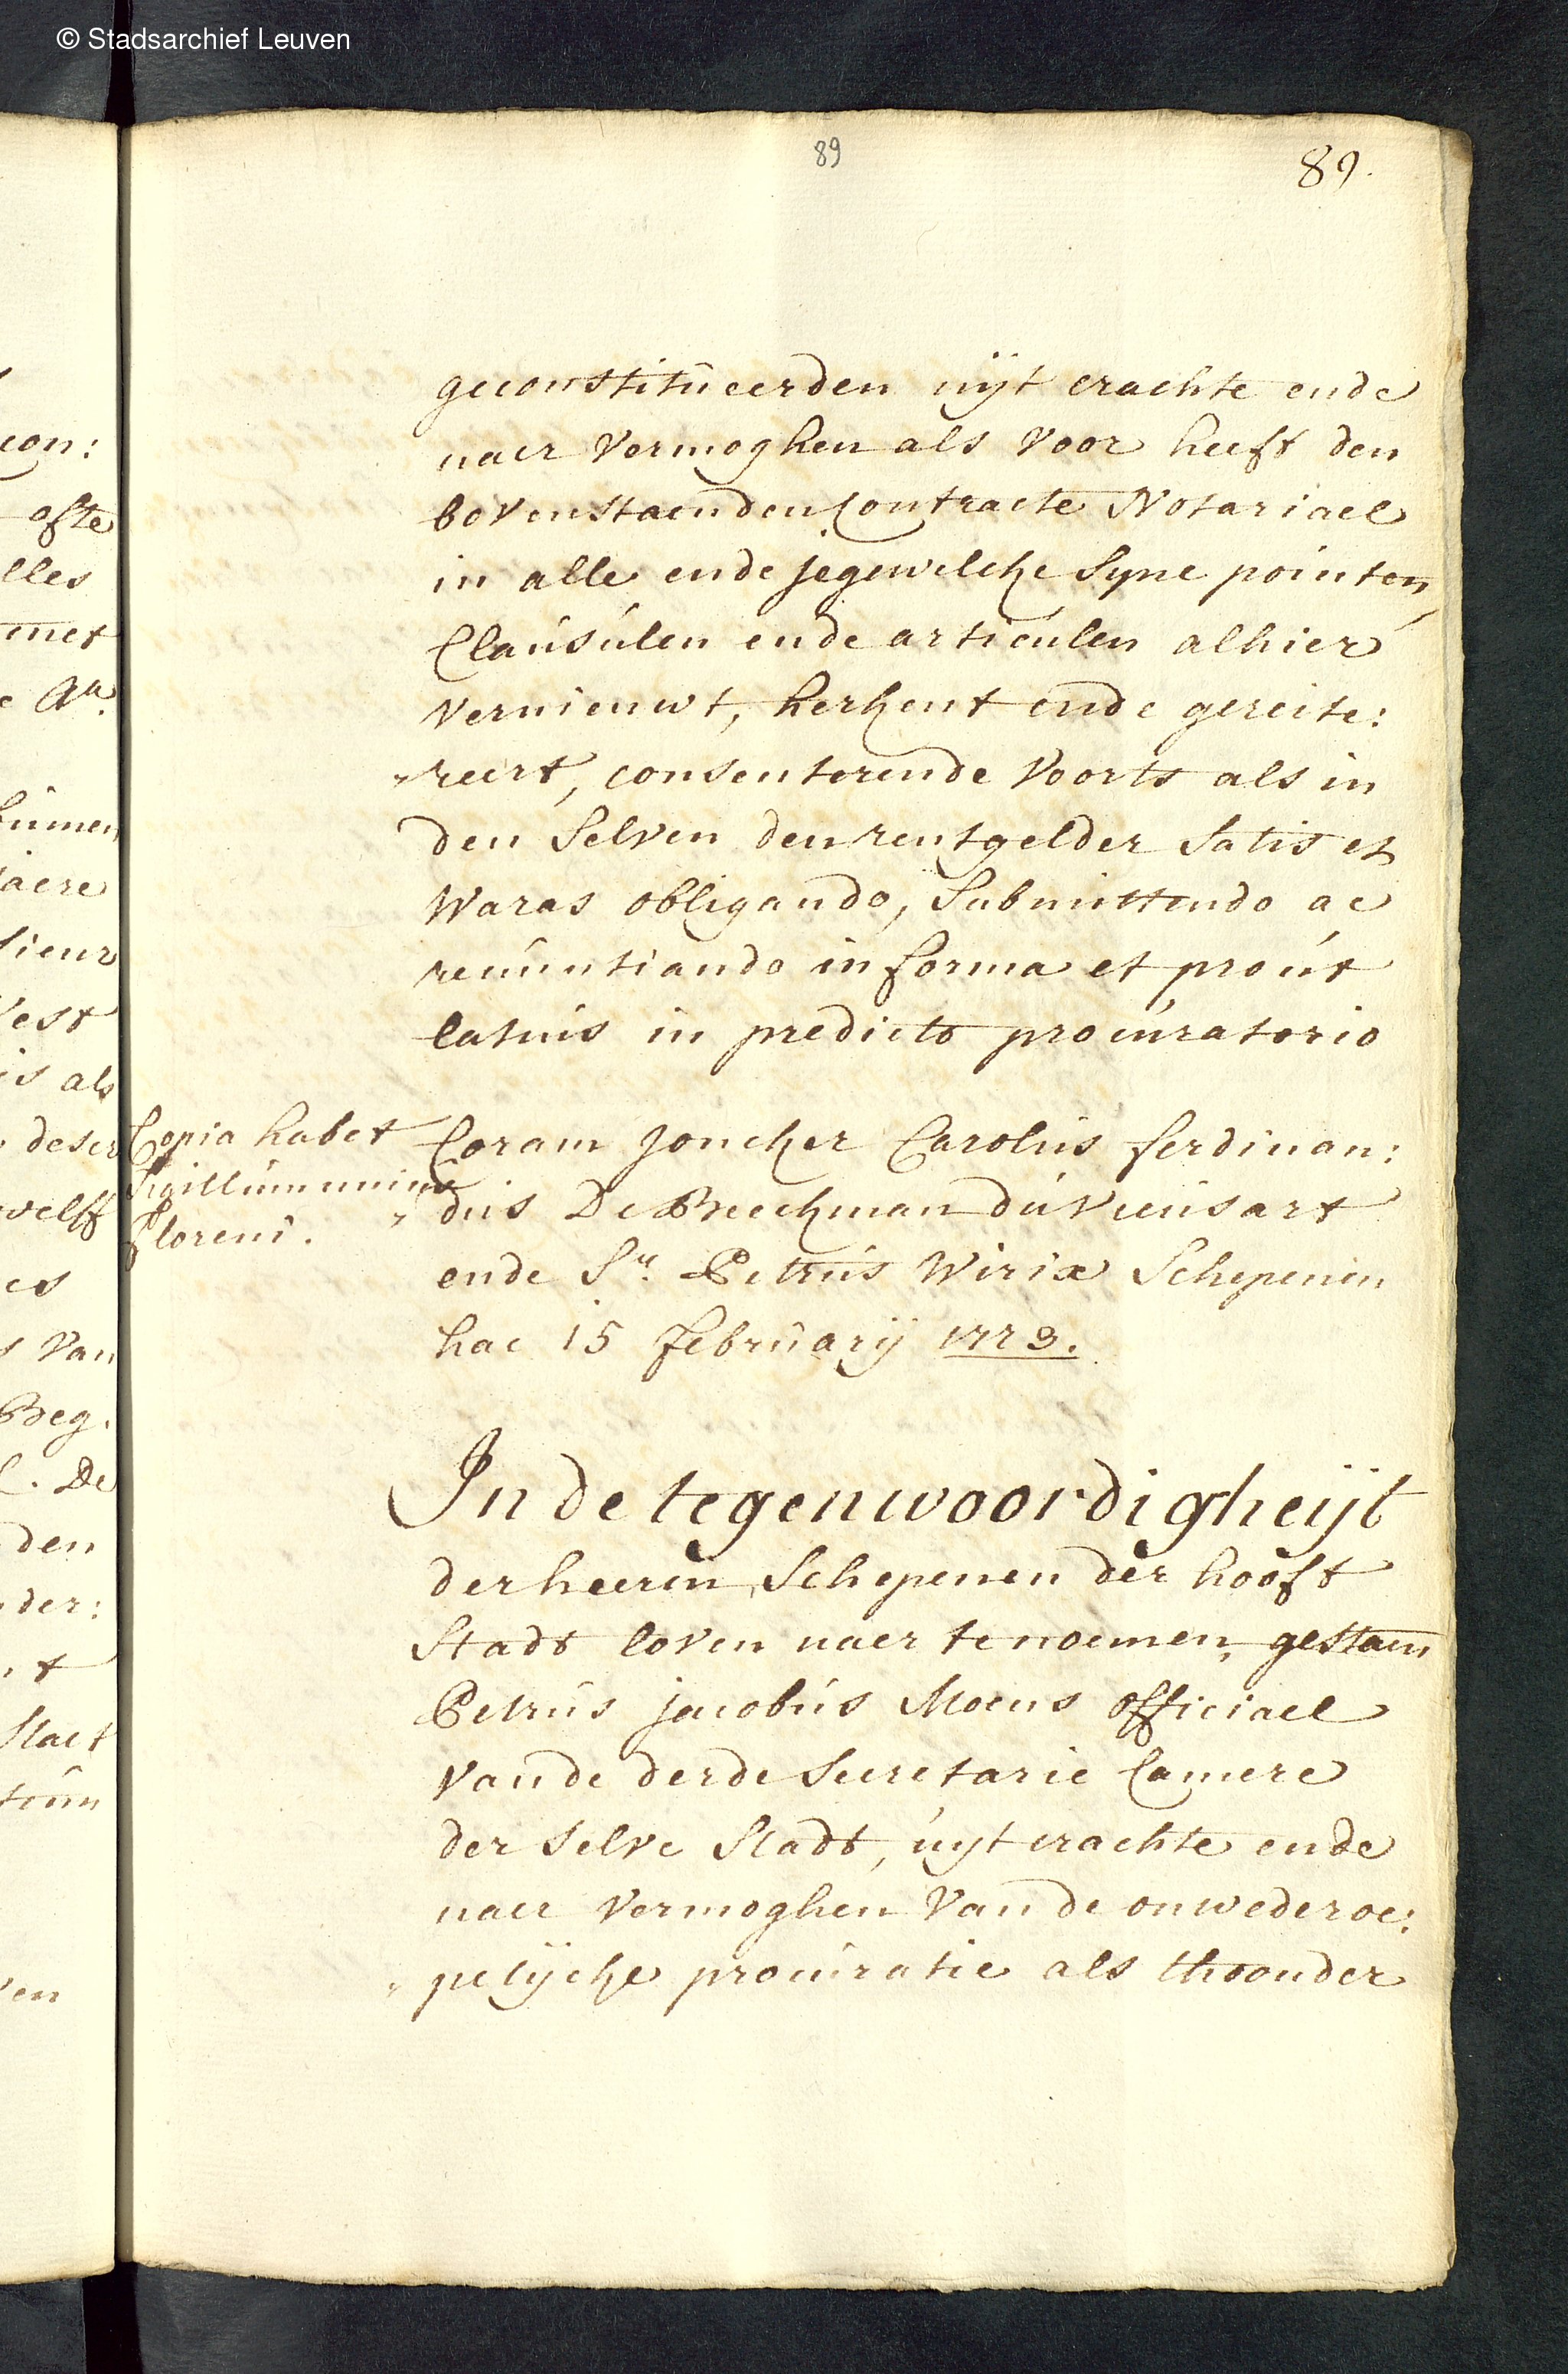 © Stadsarchief Leuven
89
89.
geconstitueerden uijt crachte ende
naer vermoghen als voor heeft den
bovenstaenden Contracte Notariael
in alle ende jegewelcke syne pointen,
Clausulen ende articulen alhier
vernieuwt, herkent ende gereite:
reert, consenterende voorts als in
den selven den rentgelder satis et
waras obligando, submittendo ac
renuntiando in forma et prout
latius in predicto procuratorio
Copia habet
Sigillum unius
floreni.
Coram Joncker Carolus ferdinan:
dus De Beeckman du Vieusart
ende Sr. Petrus Wirix Schepenen
hac 15 february 1773.
In de tegenwoordigheijt
der heeren Schepenen der hooft
Stadt loven naer te noemen, gestaen
Petrus jacobus Moens officiael
vande derde Secretarie Camere
der selve Stadt, uyt crachte ende
naer vermoghen van de onwederoe:
pelijcke procuratie als thoonder
con:
ofte
lles
met
binnen
jaere
sieur
vest
is als
deser
welff
es
s van
Beg.
De
den
der:
t
staet
ven